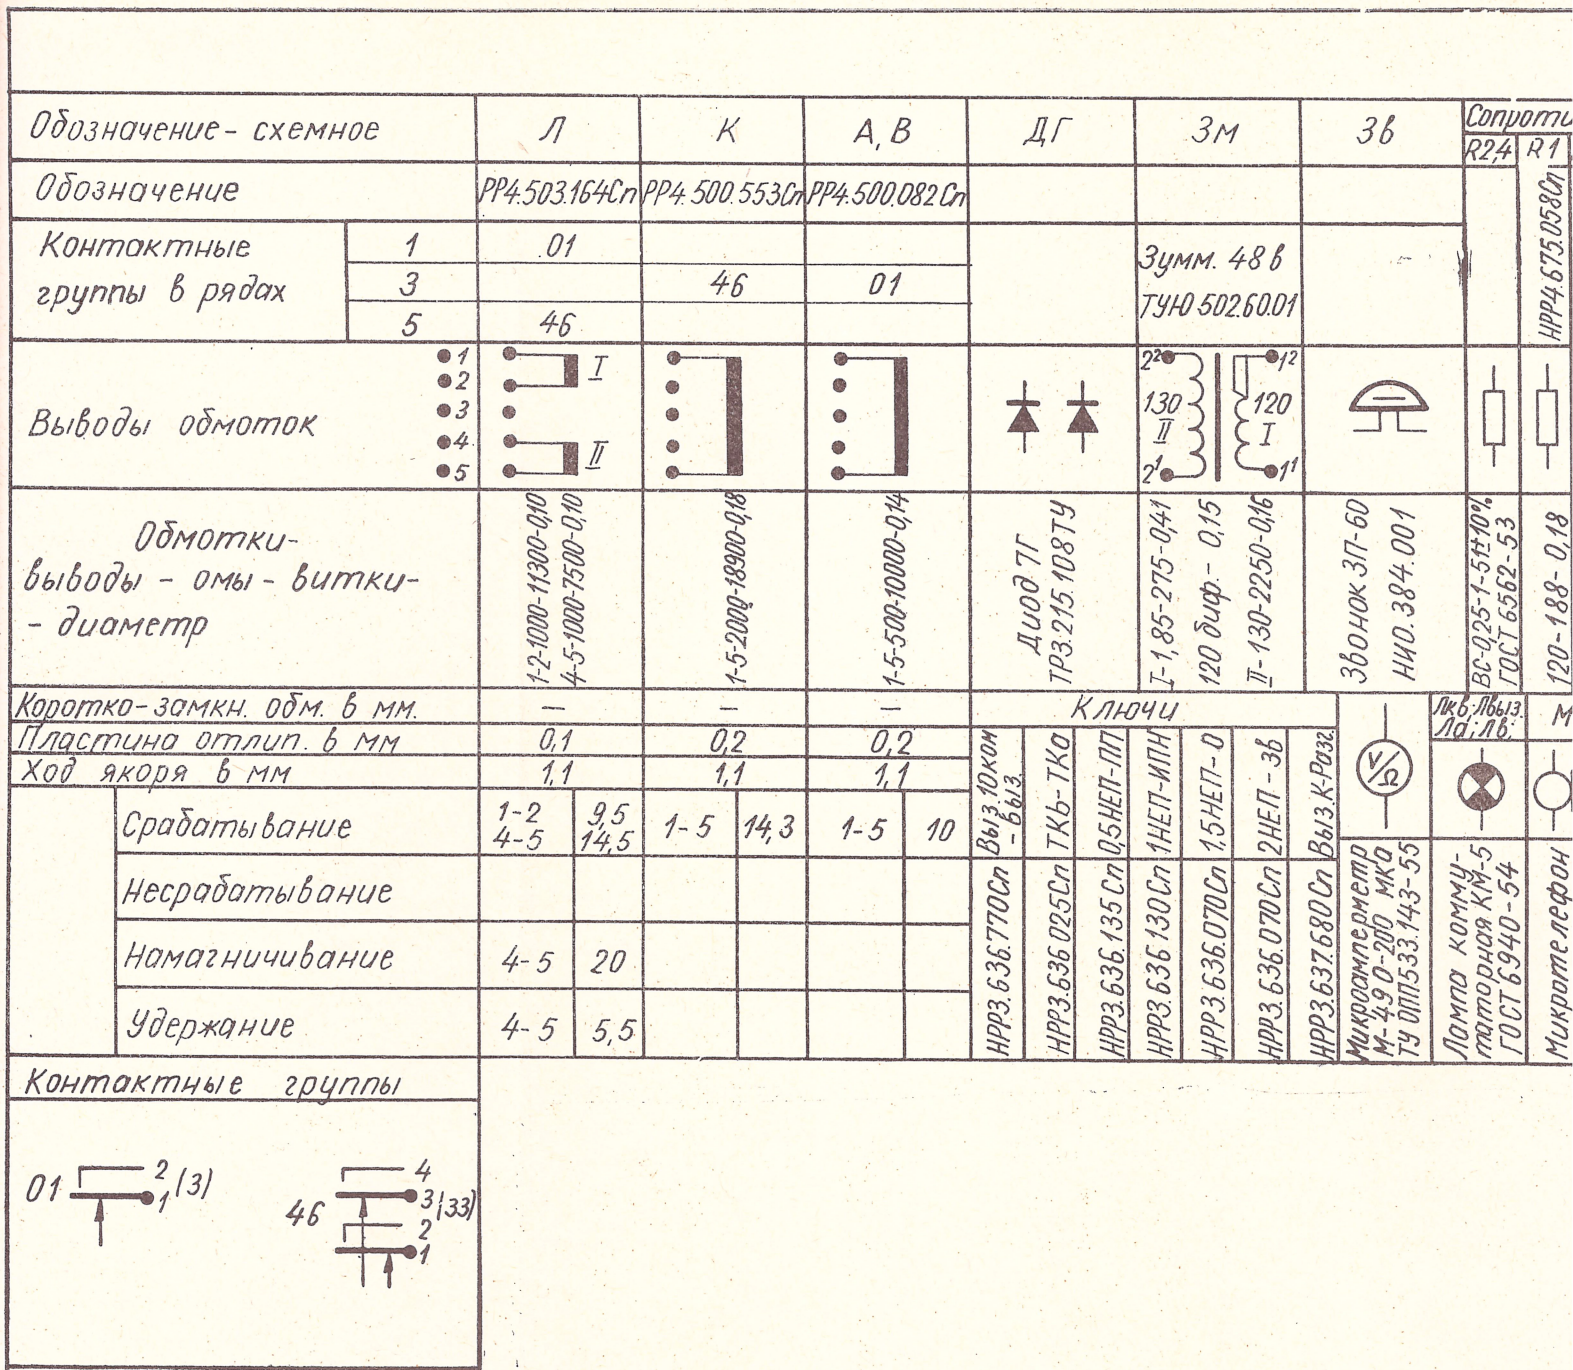 Обозначение - схемное Л К А, В ДГ Зм Зв Сопроти
R2,4 R1
Обозначение РР4.503.164Сп РР4.500.553Сп РР4.500.082Сп
НРР4.675.058Сп
Контактные группы в рядах
1 01
3 46 01
5 46
Зумм. 48 в
ТУЮ 502.60.01
Выводы обмоток
1
2
3
4
5
I
II
2² 1²
130 120
II I
2¹ 1¹
Обмотки-
выводы - омы - витки-
- диаметр
1-2-1000-11300-0,10
4-5-1000-7500-0,10
1-5-2000-18900-0,18
1-5-500-10000-0,14
Диод ПГ
ТР3.215.108ТУ
I-1,85-275-0,41
120 биф.- 0,15
II-130-2250-0,16
Звонок ЗП-60
НИ0.384.001
ВС-0,25-1-51±10%
ГОСТ 6562-53
120-188-0,18
Коротко-замкн. обм. в мм. — — —
Пластина отлип. в мм 0,1 0,2 0,2
Ход якоря в мм 1,1 1,1 1,1
Срабатывание
1-2 9,5
4-5 14,5
1-5 14,3
1-5 10
Несрабатывание
Намагничивание 4-5 20
Удержание 4-5 5,5
Ключи
Выз. 10ком
- выз.
ТКв-ТКа
0,5НЕП-ПП
1НЕП-ИПН
1,5НЕП-0
2НЕП-Зв
Выз.К-Разг.
НРР3.636.770Сп
НРР3.636.025Сп
НРР3.636.135Сп
НРР3.636.130Сп
НРР3.636.070Сп
НРР3.636.070Сп
НРР3.637.680Сп
V/Ω
Микроамперметр
М-490-200 мка
ТУ ОПП533.143-55
Лкв; Лвыз.
Ла; Лв.
Лампа комму-
таторная КМ-5
ГОСТ 6940-54
М
Микротелефон
Контактные группы
01 2 1 (3)
46 4 3 2 1 (33)